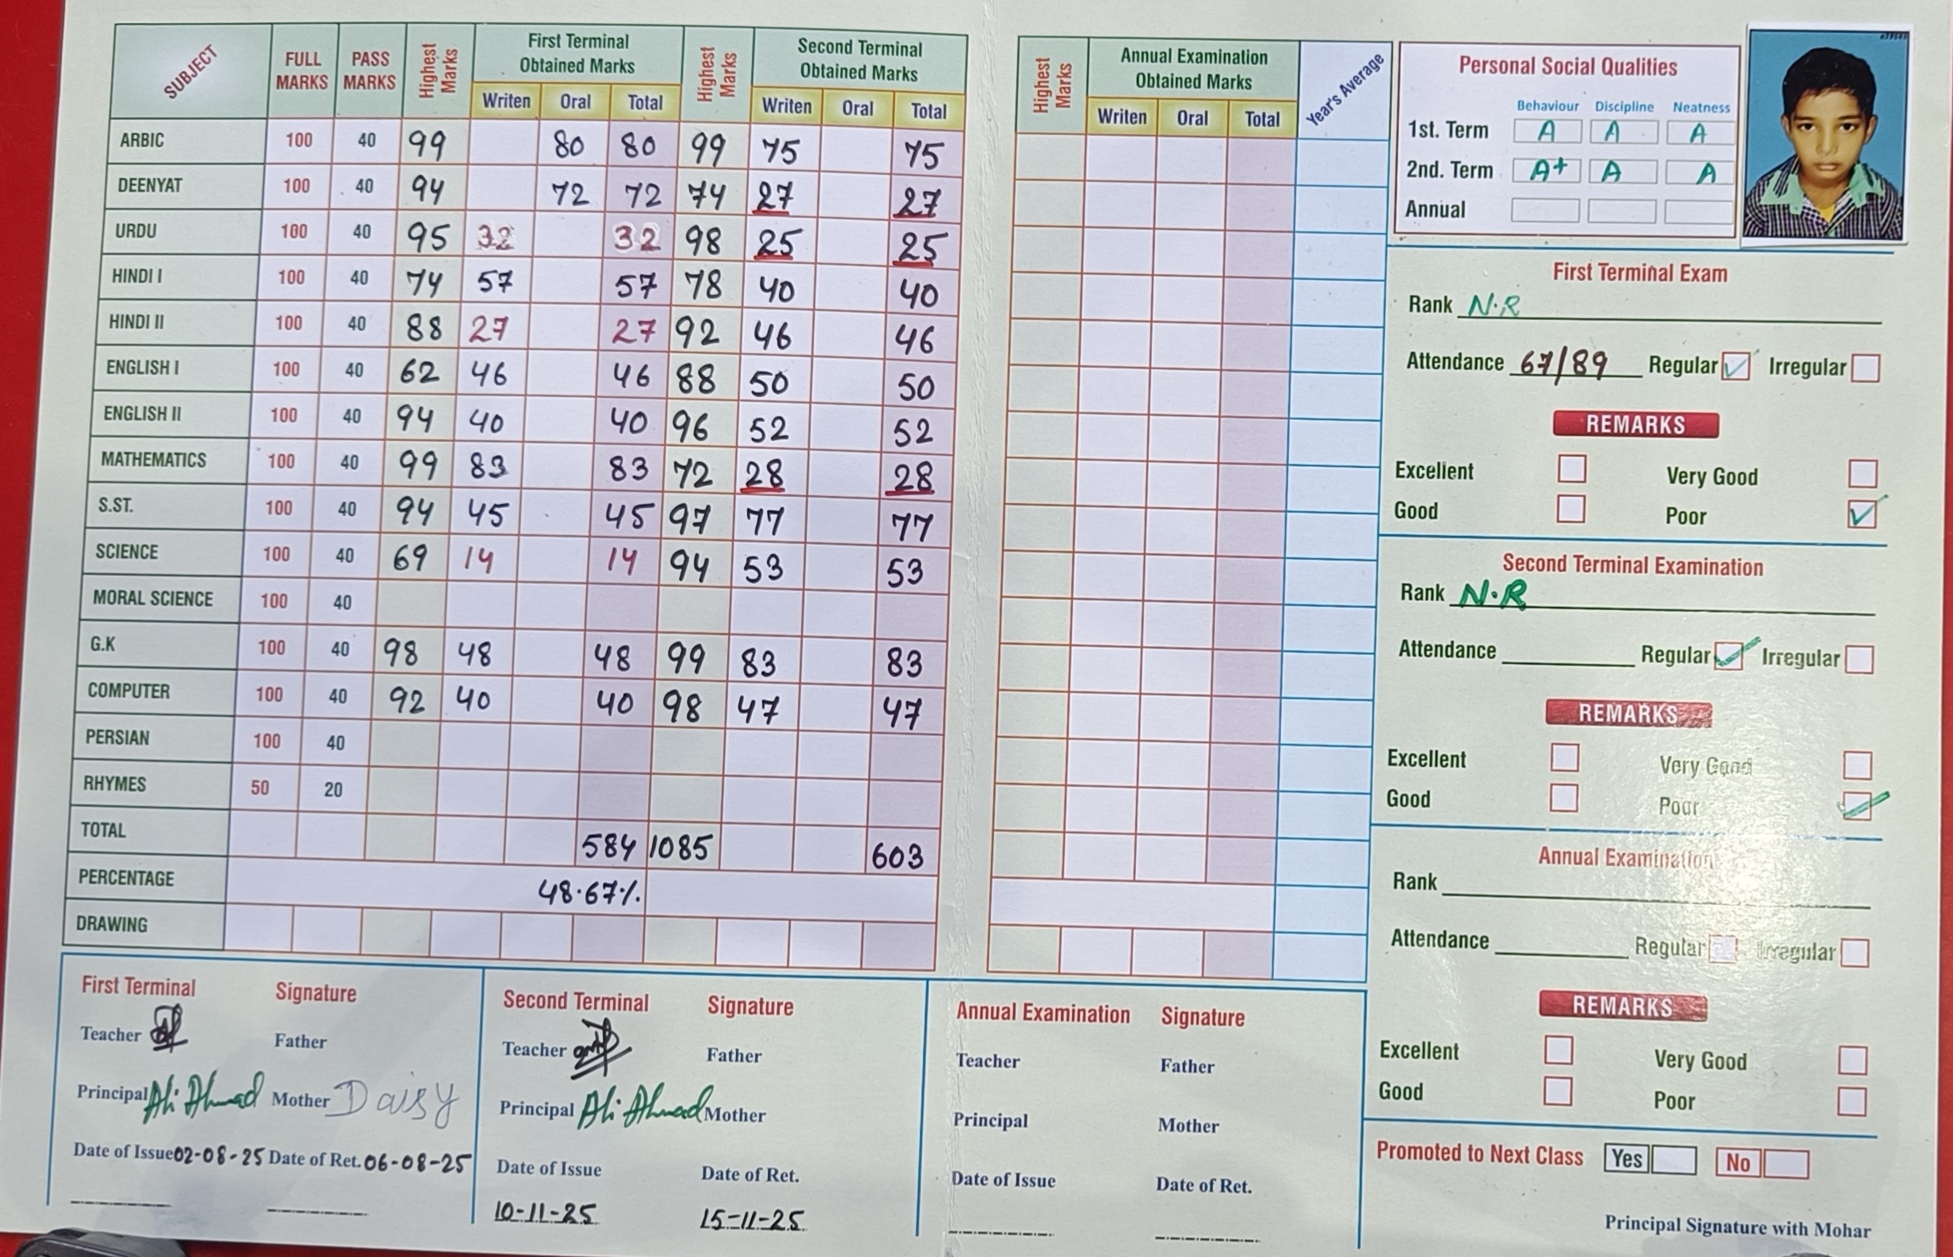 SUBJECT FULL MARKS PASS MARKS Highest Marks First Terminal Obtained Marks Highest Marks Second Terminal Obtained Marks
Writen Oral Total Writen Oral Total
ARBIC 100 40 99 80 80 99 75 75
DEENYAT 100 40 94 72 72 74 27 27
URDU 100 40 95 32 32 98 25 25
HINDI I 100 40 74 57 57 78 40 40
HINDI II 100 40 88 27 27 92 46 46
ENGLISH I 100 40 62 46 46 88 50 50
ENGLISH II 100 40 94 40 40 96 52 52
MATHEMATICS 100 40 99 83 83 72 28 28
S.ST. 100 40 94 45 45 97 77 77
SCIENCE 100 40 69 14 14 94 53 53
MORAL SCIENCE 100 40
G.K 100 40 98 48 48 99 83 83
COMPUTER 100 40 92 40 40 98 47 47
PERSIAN 100 40
RHYMES 50 20
TOTAL 584 1085 603
PERCENTAGE 48.67%.
DRAWING
Highest Marks Annual Examination Obtained Marks Year's Average
Writen Oral Total
Personal Social Qualities
Behaviour Discipline Neatness
1st. Term A A A
2nd. Term A+ A A
Annual
First Terminal Exam
Rank N.R
Attendance 67/89 Regular Irregular
REMARKS
Excellent Very Good
Good Poor
Second Terminal Examination
Rank N.R
Attendance Regular Irregular
REMARKS
Excellent Very Good
Good Poor
Annual Examination
Rank
Attendance Regular Irregular
REMARKS
Excellent Very Good
Good Poor
Promoted to Next Class Yes No
Principal Signature with Mohar
First Terminal Signature
Teacher Father
Principal Ali Ahmad Mother Daisy
Date of Issue 02-08-25 Date of Ret. 06-08-25
Second Terminal Signature
Teacher Father
Principal Ali Ahmad Mother
Date of Issue Date of Ret.
10-11-25 15-11-25
Annual Examination Signature
Teacher Father
Principal Mother
Date of Issue Date of Ret.